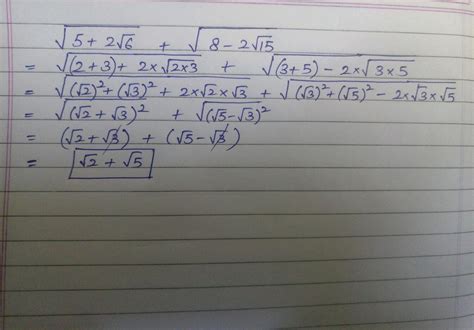 √5 + 2√6 + √8 - 2√15
= √(2+3) + 2×√2×3 + √(3+5) - 2×√3×5
= √(√2)² + (√3)² + 2×√2×√3 + √(√3)² + (√5)² - 2×√3×√5
= √(√2 + √3)² + √(√5 - √3)²
= (√2 + √3) + (√5 - √3)
= √2 + √5